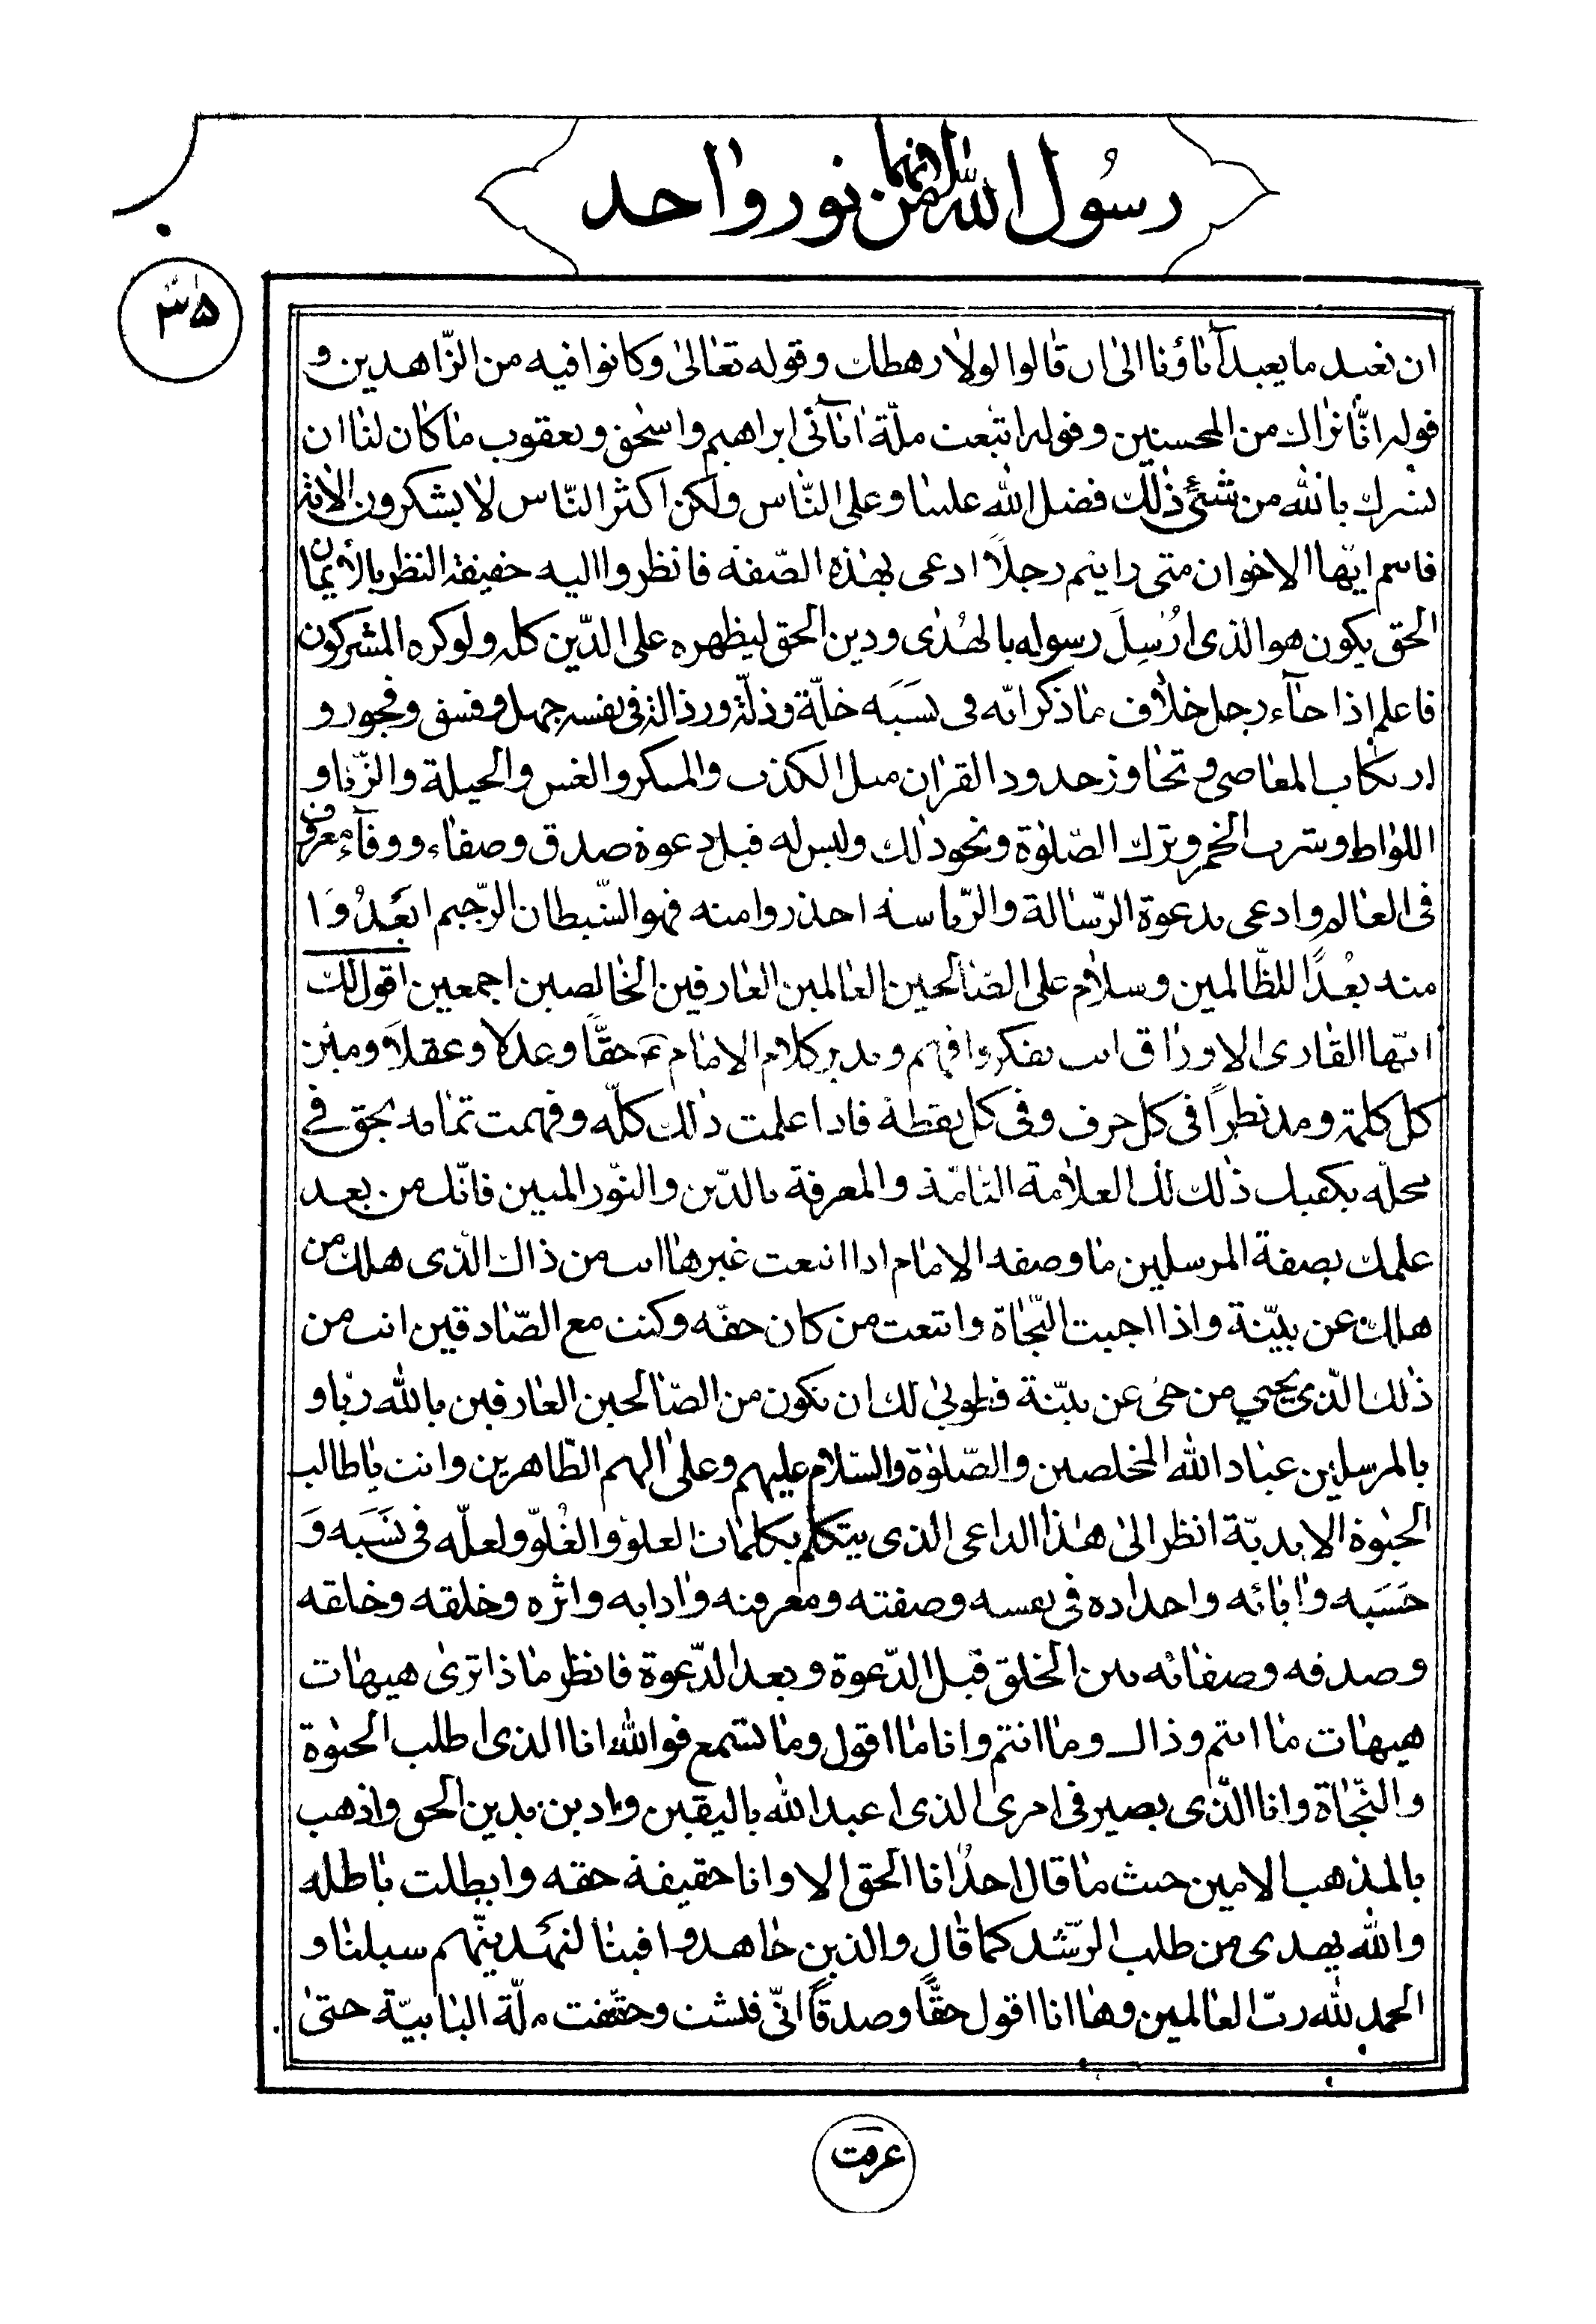 رسول الله انهما من نور واحد
٣٥
ان نعبد ما يعبد آباؤنا الى ان قالوا لولا رهطك وقوله تعالى وكانوا فيه من الزّاهدين و
قوله انّا نراك من المحسنين وقوله اتبعت ملّة اٰبآئى ابراهيم واسحق ويعقوب ما كان لنا ان
نشرك بالله من شئ ذٰلك فضل الله علينا وعلى النّاس ولكن اكثر النّاس لا يشكرون الاية
فاسم ايّها الاخوان متى رايتم رجلاً ادعى بهذه الصّفة فانظروا اليه حقيقة النظر بالأيمان
الحق يكون هو الذى ارُسِلَ رسوله بالهُدى ودين الحق ليظهره على الدّين كله ولوكره المشركون
فاعلم اذا جآء رجل خلاف ما ذكر انّه فى نسَبَه خلّة وذلّة ورذالة فى نفسه جهل وفسق وفجور و
ارتكاب المعاصى وتجاوز حدود القران مثل الكذب والمكر والغش والحيلة والزّنا و
اللواط وشرب الخمر وترك الصّلوة ونحو ذلك وليس له قبل دعوة صدق وصفاء ووفآء معرفة
فى العالم وادعى بدعوة الرّسالة والرّياسة احذروا منه فهو الشّيطان الرّجيم ابعَدُوَا
منه بعْدًا للظّالمين وسلام على الصّالحين العالمين العارفين الخالصين اجمعين اقول لك
ايّها القارى الاوراق انت تفكر وافهم وتدبر كلام الامام ع حقًّا وعدلا وعقلاً وميّز
كل كلمة ومد نظراً فى كل حرف وفى كل نقطة فاذا علمت ذلك كلّه وفهمت تمامه بحق فى
محلّه يكفيك ذٰلك لك العلامة التامّة والمعرفة بالدّين والنّور المبين فانّك من بعد
علمك بصفة المرسلين ما وصفه الامام اذا اتبعت غيرها انت من ذاك الّذى هلك من
هلك عن بيّنة واذا اجبت النّجاة واتبعت من كان حقّه وكنت مع الصّادقين انت من
ذٰلك الّذى يحيي من حىّ عن بيّنة فطوبى لك ان تكون من الصّالحين العارفين بالله ربّا و
بالمرسلين عباد الله المخلصين والصّلوة والسّلام عليهم وعلى الهم الطّاهرين وانت ياطالب
الحيوة الابديّة انظر الى هٰذا الداعى الذى يتكلم بكلمات العلوّ والغُلوّ ولعلّه فى نسَبَه وَ
حَسَبَه واٰبائه واجداده فى نفسه وصفته ومعرفته واٰدابه واثره وخلقه وخلقه
وصدقه وصفاته بين الخلق قبل الدّعوة وبعد الدّعوة فانظر ماذا ترى هيهات
هيهات ما انتم وذاك وما انتم وانا ما اقول وما تستمع فوالله انا الذى اطلب الحيوة
والنّجاة وانا الّذى بصير فى امرى الذى اعبد الله باليقين وادين بدين الحق واذهب
بالمذهب الامين حيث ما قال احدٌ انا الحق الا وانا حقيقة حقه وابطلت باطله
والله يهدى من طلب الرّشد كما قال والذين جاهدوا فينا لنهدينّهم سبلنا و
الحمد لله ربّ العالمين وها انا اقول حقًّا وصدقًا انّى فتشت وحقّقت ملّة البابيّة حتى
عرفت